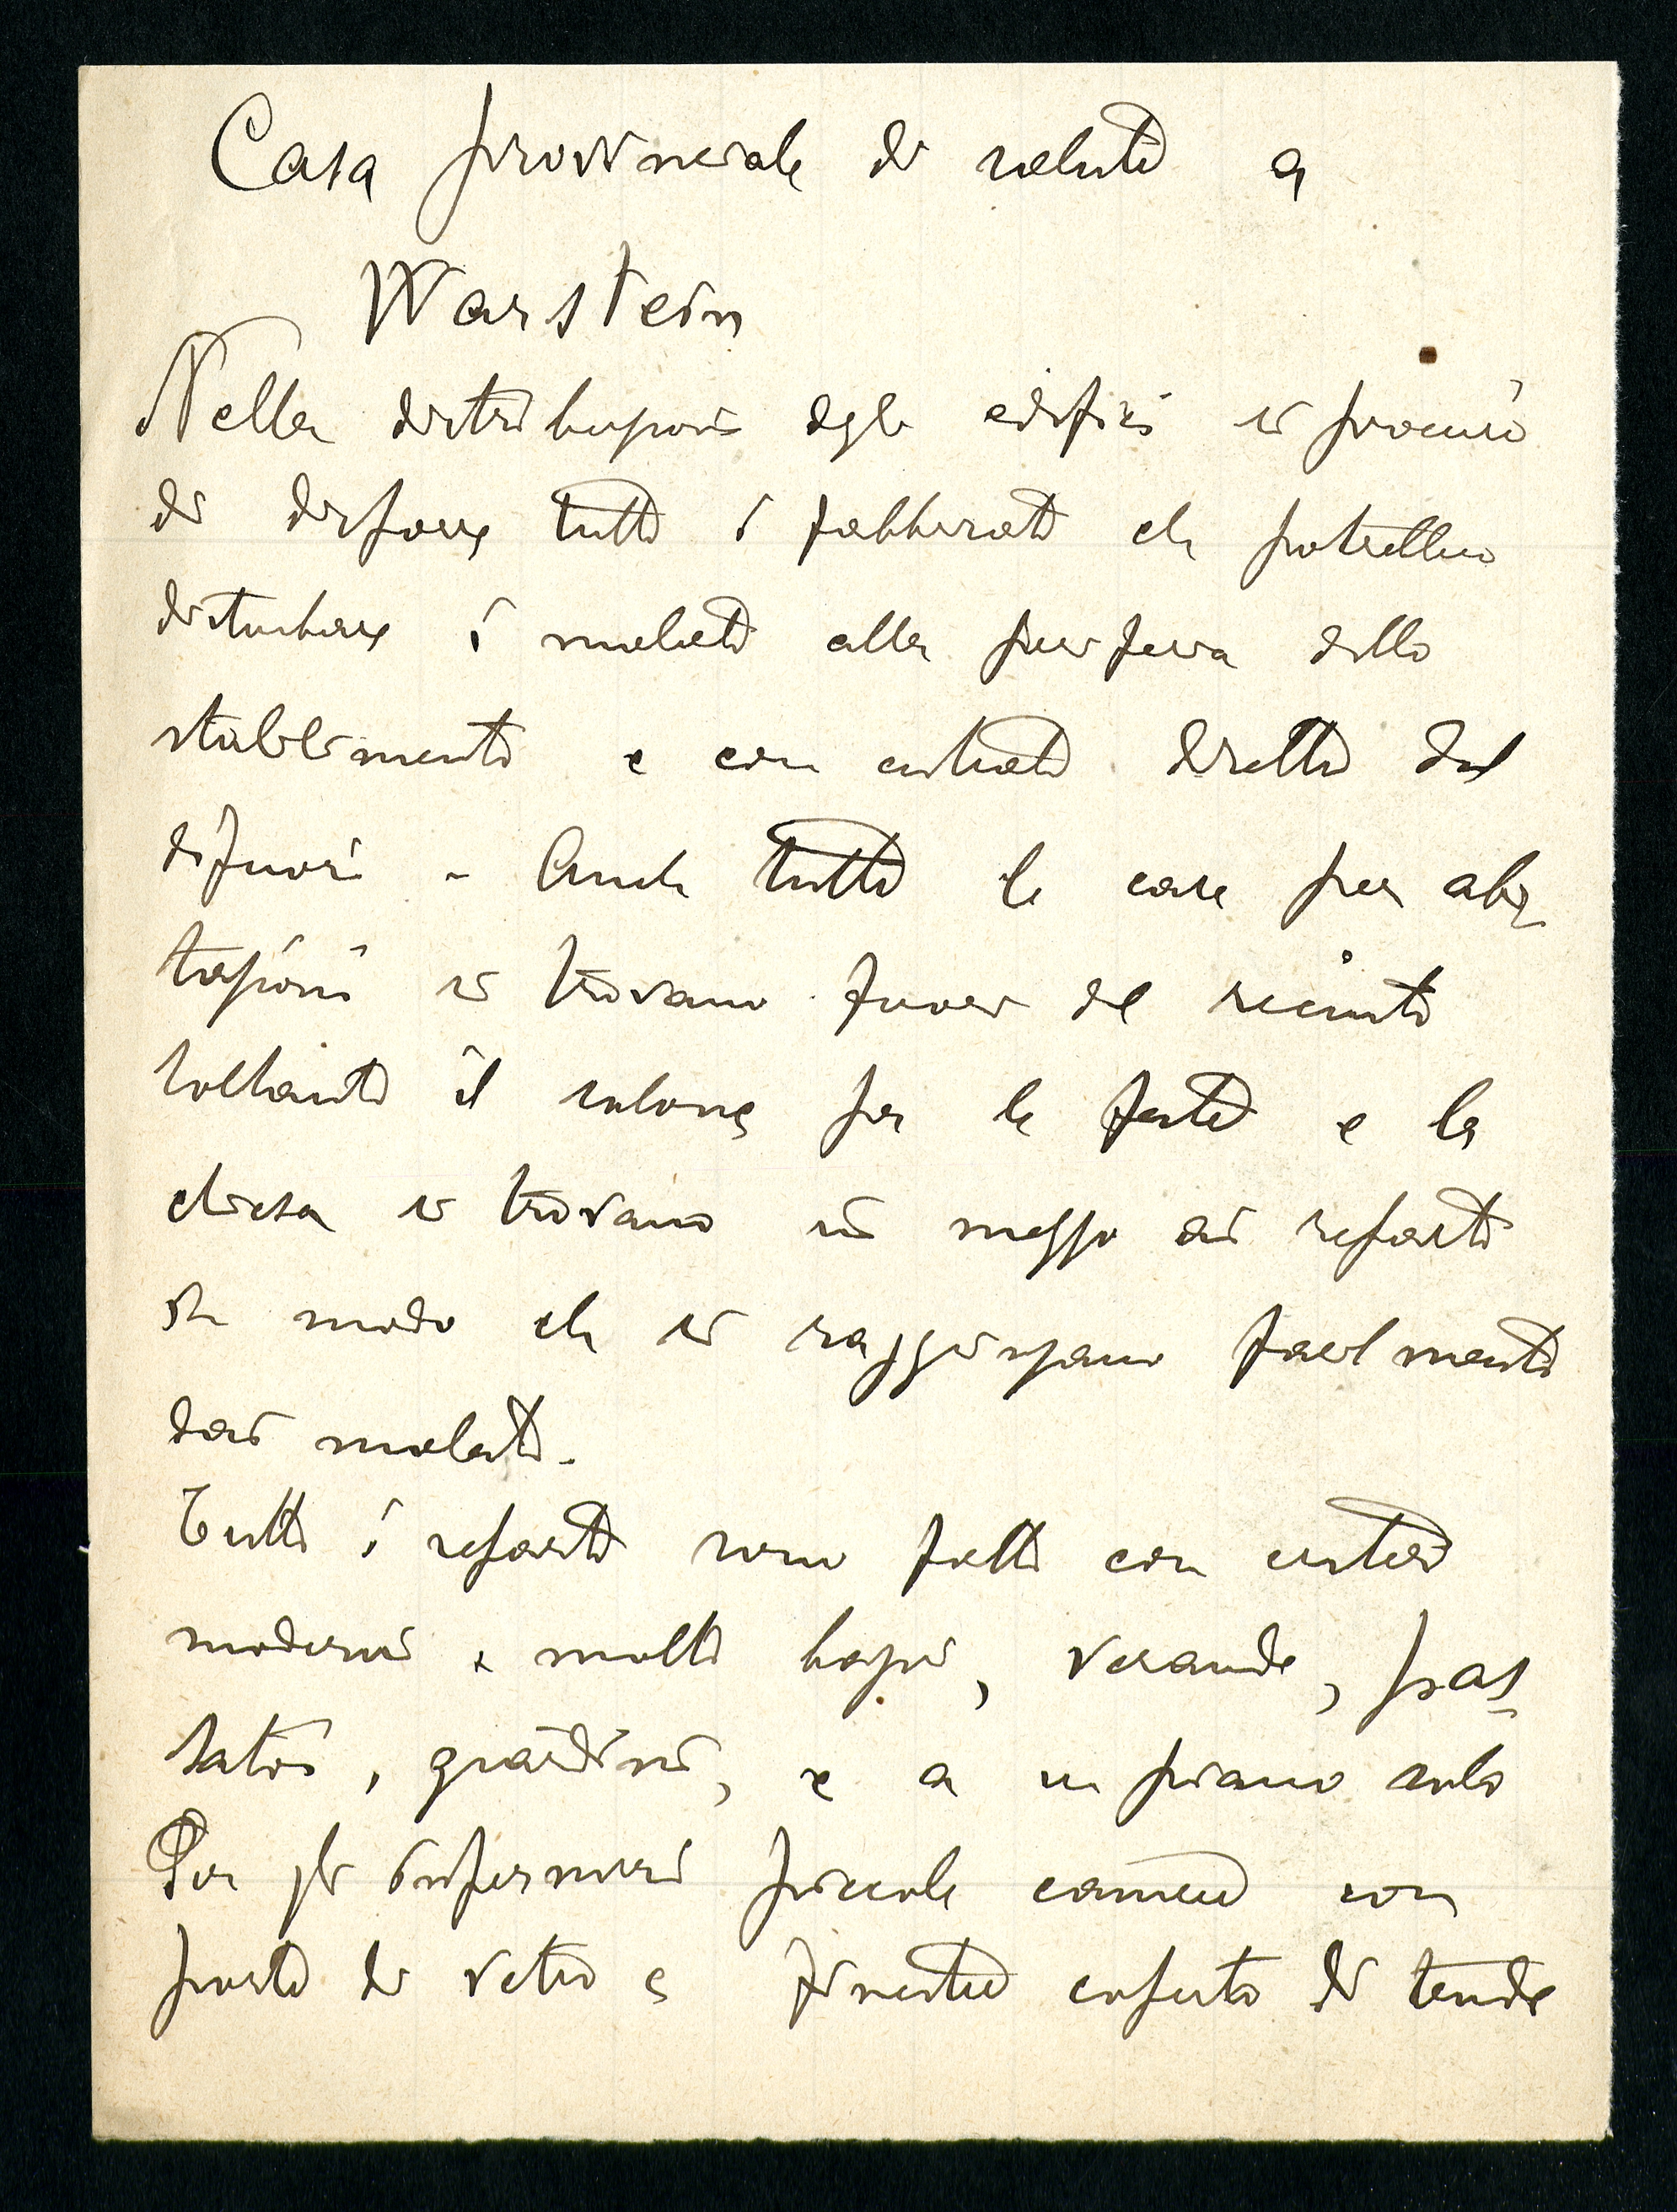 Casa provinciale di salute a
Warstein
Nella distribuzione degli edifici si procurò
di disporre tutti i fabbricati che potrebbero
disturbare i malati alla periferia dello
stabilimento e con entrate dirette dal
difuori - Anche tutte le case per abi-
tazioni si trovano fuori del recinto
soltanto il salone per le feste e la
chiesa si trovano in mezzo ai reparti
in modo che si raggiungano facilmente
dai malati.
Tutti i reparti sono fatti con criteri
moderni e molti bagni, verande, pas-
satoi, giardini, e a un piano solo
Per gli infermieri piccole camere con
porte di vetro e finestre coperte di tende